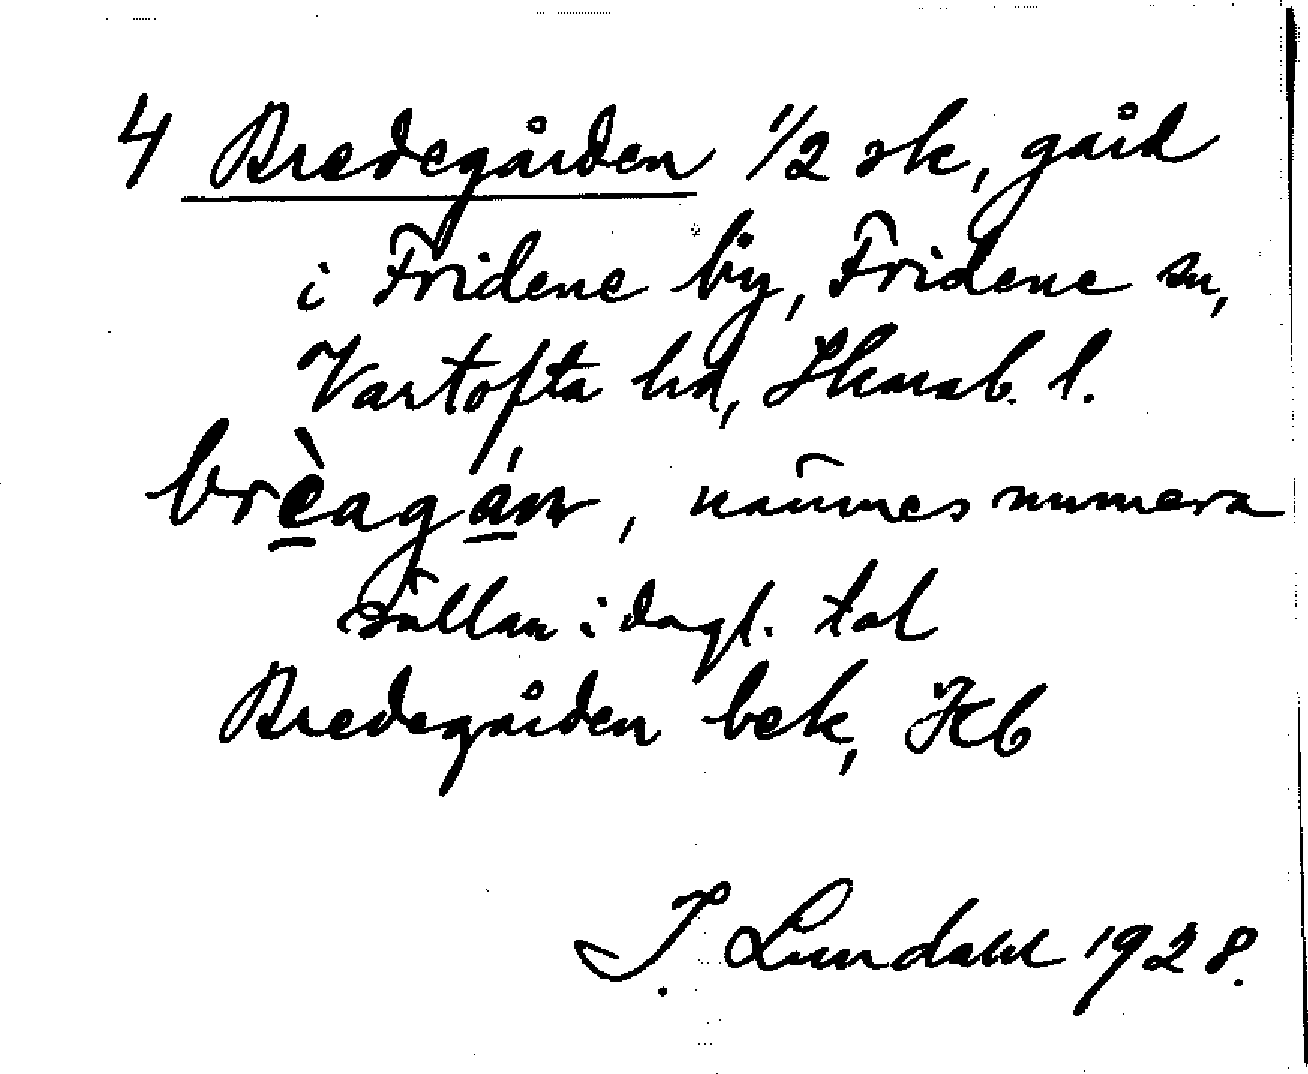 4 Bredegården 1/2 sk, gård
i Fridene by, Fridene sn,
Vartofta hd, Skarab. l.
brèagán, nämnes numera
sällan i dagl. tal
Bredegården bek, Hb
I. Lundahl 1928.